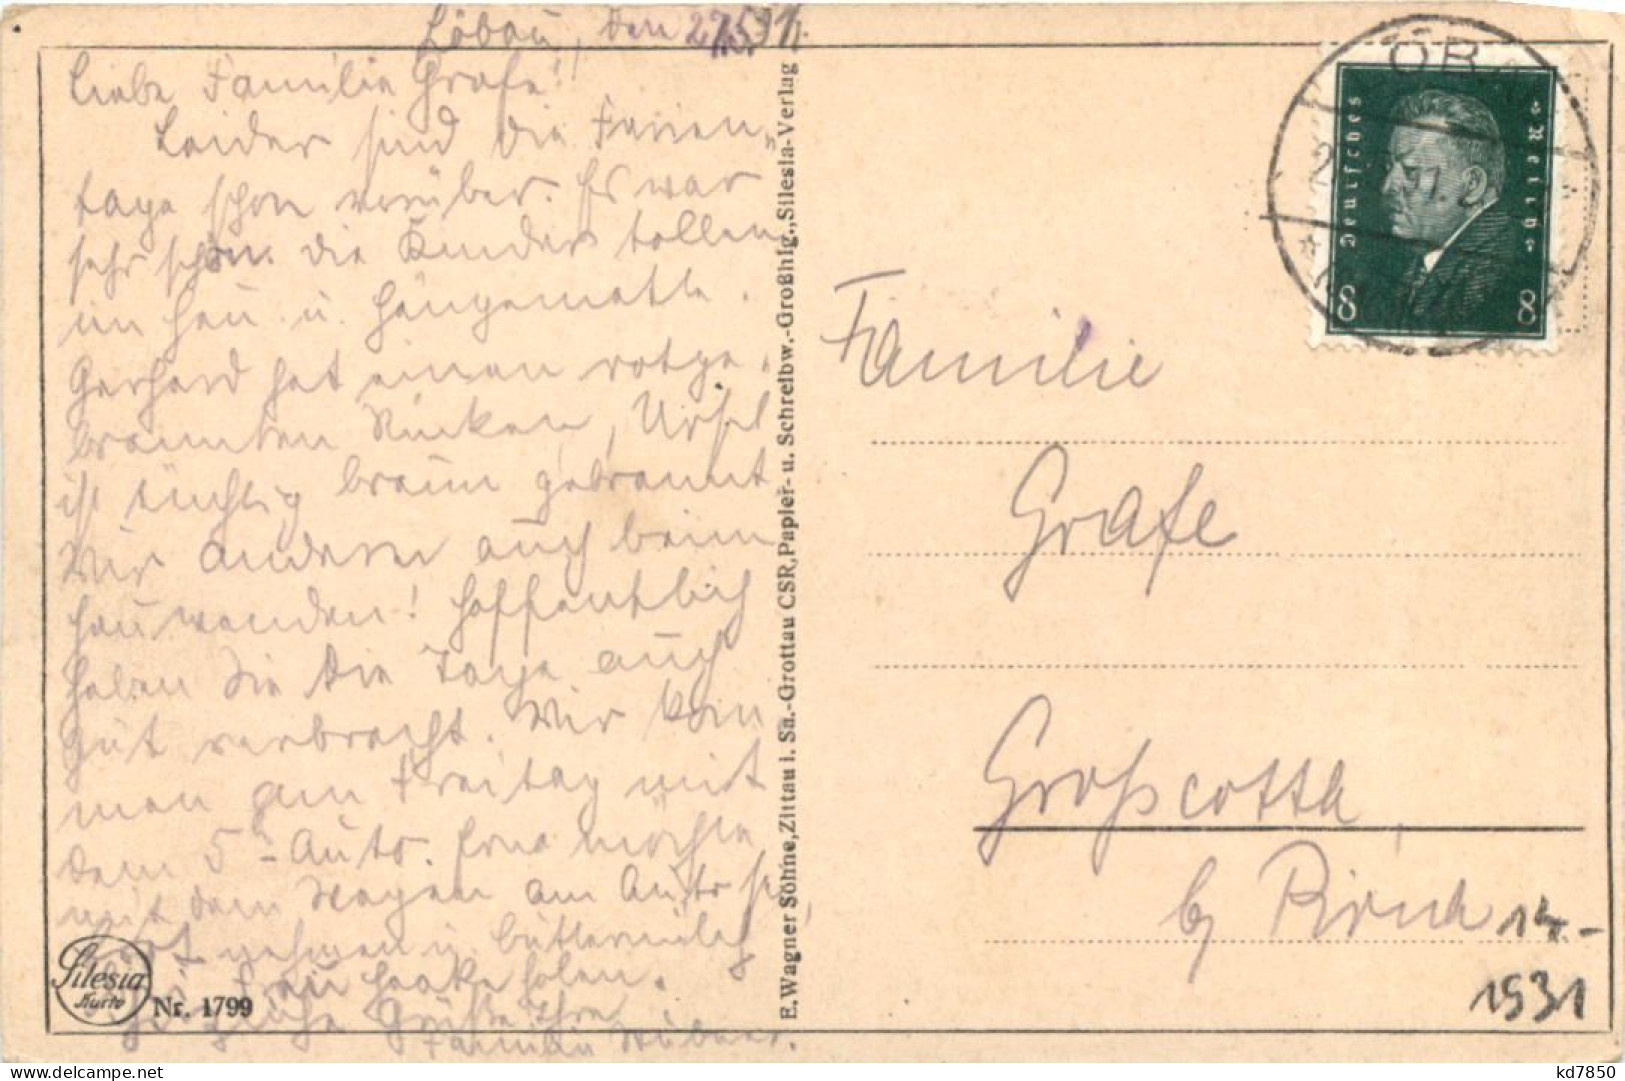 Löbau, den 27.5.31.
Liebe Familie Grafe!
Leider sind die Ferien-
tage schon vorüber. Es war
sehr schön. Die Kinder tollen
im Heu u. Hängematte.
Gerhard hat einen rotge-
brannten Rücken, Ursel
ist tüchtig braun gebrannt
Wir anderen auch beim
Heuwenden! Hoffentlich
haben Sie die Tage auch
gut verbracht. Wir kom
men am Freitag mit
dem 5h-Auto. Erna möchte
mit dem Wagen am Auto sein,
nehmen u. Buttermilch
bei Frau Haake holen.
Herzliche Grüße Ihre
Familie
Silesia
Karte
Nr. 1799
E. Wagner Söhne, Zittau i. Sa.-Grottau CSR, Papier- u. Schreibw.-Großhlg. „Silesia-Verlag
Deutsches Reich
8 8
Familie
Grafe
Großcotta,
b/ Pirna
14.-
1931
kd7850